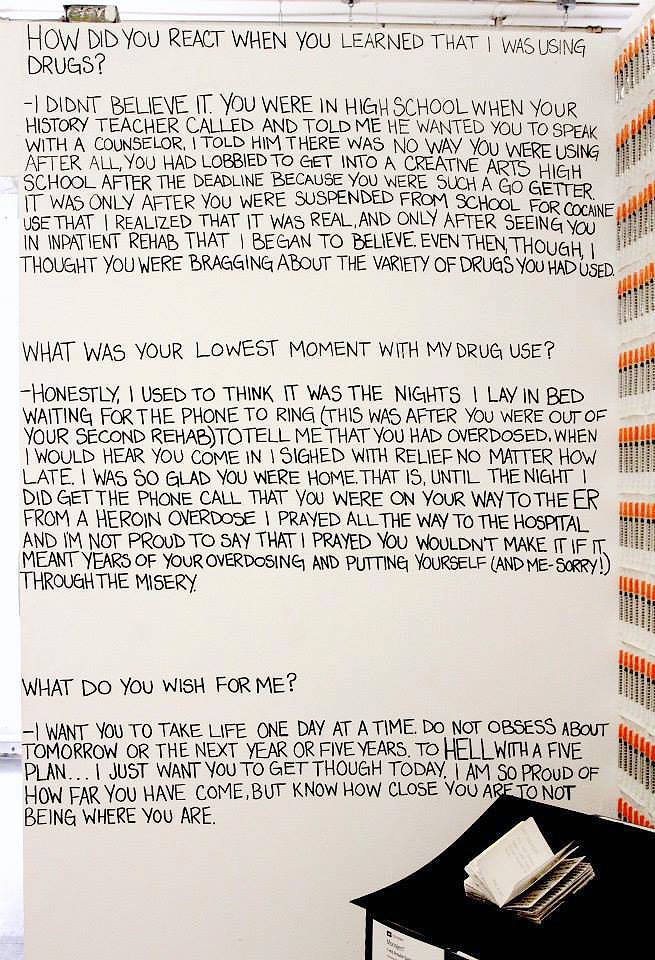 HOW DID YOU REACT WHEN YOU LEARNED THAT I WAS USING
DRUGS?
-I DIDNT BELIEVE IT. YOU WERE IN HIGH SCHOOL WHEN YOUR
HISTORY TEACHER CALLED AND TOLD ME HE WANTED YOU TO SPEAK
WITH A COUNSELOR, I TOLD HIM THERE WAS NO WAY YOU WERE USING
AFTER ALL, YOU HAD LOBBIED TO GET INTO A CREATIVE ARTS HIGH
SCHOOL AFTER THE DEADLINE BECAUSE YOU WERE SUCH A GO GETTER.
IT WAS ONLY AFTER YOU WERE SUSPENDED FROM SCHOOL FOR COCAINE
USE THAT I REALIZED THAT IT WAS REAL, AND ONLY AFTER SEEING YOU
IN INPATIENT REHAB THAT I BEGAN TO BELIEVE. EVEN THEN, THOUGH, I
THOUGHT YOU WERE BRAGGING ABOUT THE VARIETY OF DRUGS YOU HAD USED.
WHAT WAS YOUR LOWEST MOMENT WITH MY DRUG USE?
-HONESTLY, I USED TO THINK IT WAS THE NIGHTS I LAY IN BED
WAITING FOR THE PHONE TO RING (THIS WAS AFTER YOU WERE OUT OF
YOUR SECOND REHAB) TO TELL ME THAT YOU HAD OVERDOSED. WHEN
I WOULD HEAR YOU COME IN I SIGHED WITH RELIEF NO MATTER HOW
LATE. I WAS SO GLAD YOU WERE HOME. THAT IS, UNTIL THE NIGHT I
DID GET THE PHONE CALL THAT YOU WERE ON YOUR WAY TO THE ER
FROM A HEROIN OVERDOSE I PRAYED ALL THE WAY TO THE HOSPITAL
AND I'M NOT PROUD TO SAY THAT I PRAYED YOU WOULDN'T MAKE IT IF IT
MEANT YEARS OF YOUR OVERDOSING AND PUTTING YOURSELF (AND ME-SORRY!)
THROUGH THE MISERY.
WHAT DO YOU WISH FOR ME?
-I WANT YOU TO TAKE LIFE ONE DAY AT A TIME. DO NOT OBSESS ABOUT
TOMORROW OR THE NEXT YEAR OR FIVE YEARS. TO HELL WITH A FIVE
PLAN... I JUST WANT YOU TO GET THOUGH TODAY. I AM SO PROUD OF
HOW FAR YOU HAVE COME, BUT KNOW HOW CLOSE YOU ARE TO NOT
BEING WHERE YOU ARE.